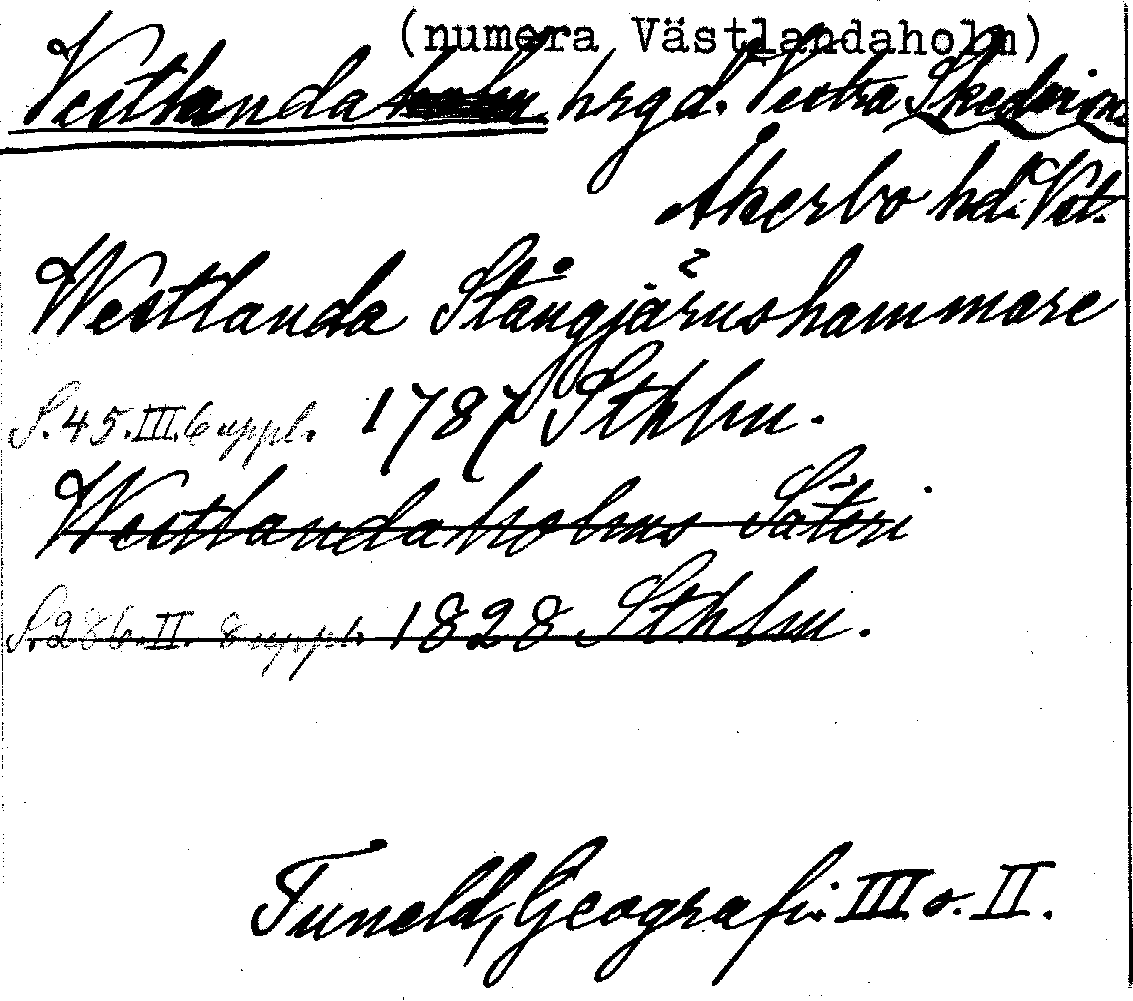 (numera Västlandaholm)
Vestlanda hrgd. Vestra Skedvi sn.
Åkerbo hd. Vstl.
Westlanda Stångjärnshammare
S. 45. III. 6 uppl. 1787 Sthlm.
Westlandaholms Säteri
S. 286. II. 8 uppl. 1828 Sthlm.
Tuneld, Geografi. III o. II.